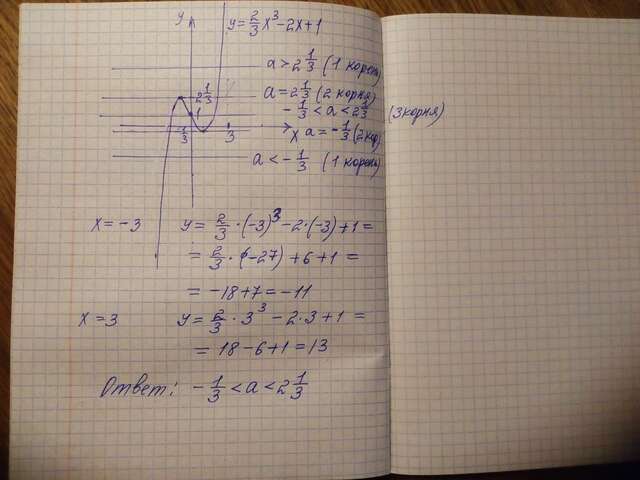 y y = 2/3 x³ - 2x + 1
a > 2 1/3 (1 корень)
2 1/3 a = 2 1/3 (2 корня)
1 - 1/3 < a < 2 1/3 (3 корня)
- 1/3 3 x a = - 1/3 (2 кор)
a < - 1/3 (1 корень)
x = -3 y = 2/3 · (-3)³ - 2·(-3) + 1 =
= 2/3 · (-27) + 6 + 1 =
= -18 + 7 = -11
x = 3 y = 2/3 · 3³ - 2·3 + 1 =
= 18 - 6 + 1 = 13
Ответ: - 1/3 < a < 2 1/3